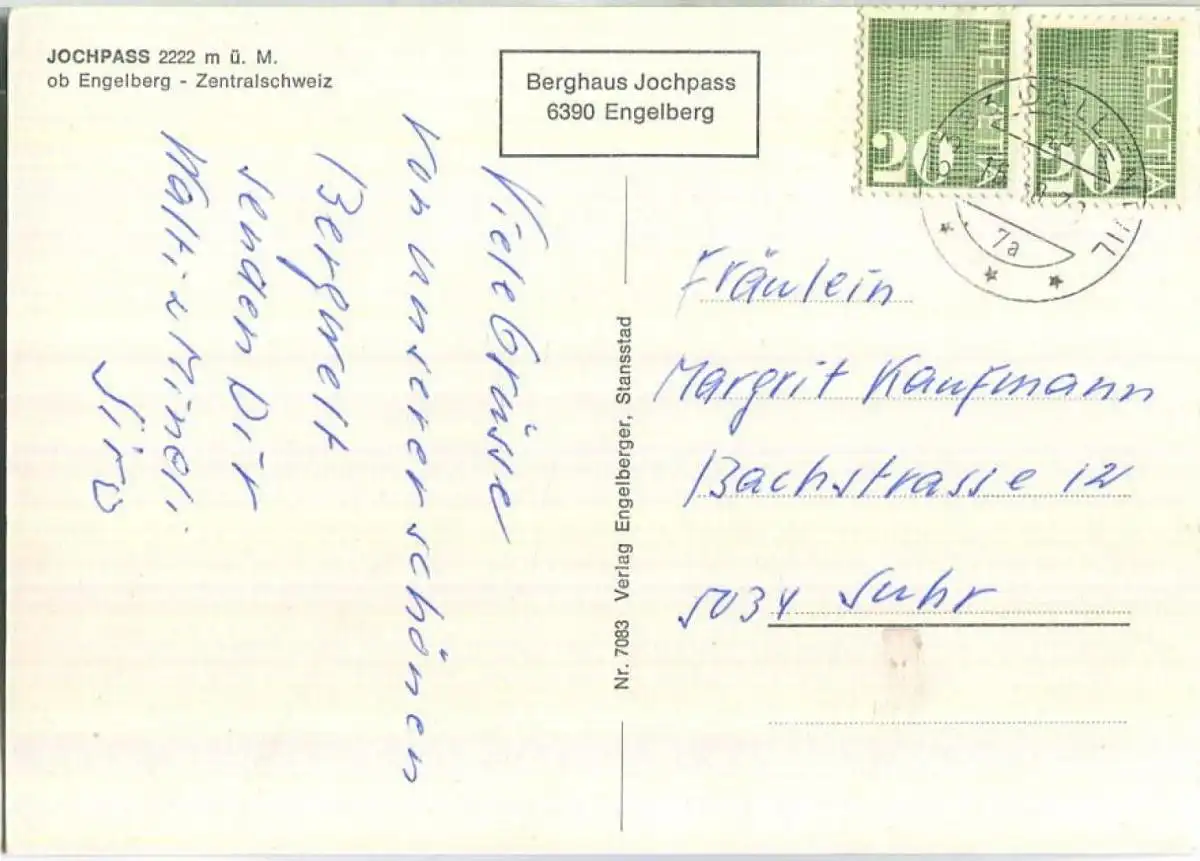 JOCHPASS 2222 m ü. M.
ob Engelberg - Zentralschweiz
Berghaus Jochpass
6390 Engelberg
HELVETIA
20
HELVETIA
50
7a
Viele Grüsse
von unserer schönen
Bergwelt
senden Dir
Nr. 7083 Verlag Engelberger, Stansstad
Fräulein
Margrit Kaufmann
Bachstrasse 12
5034 Suhr